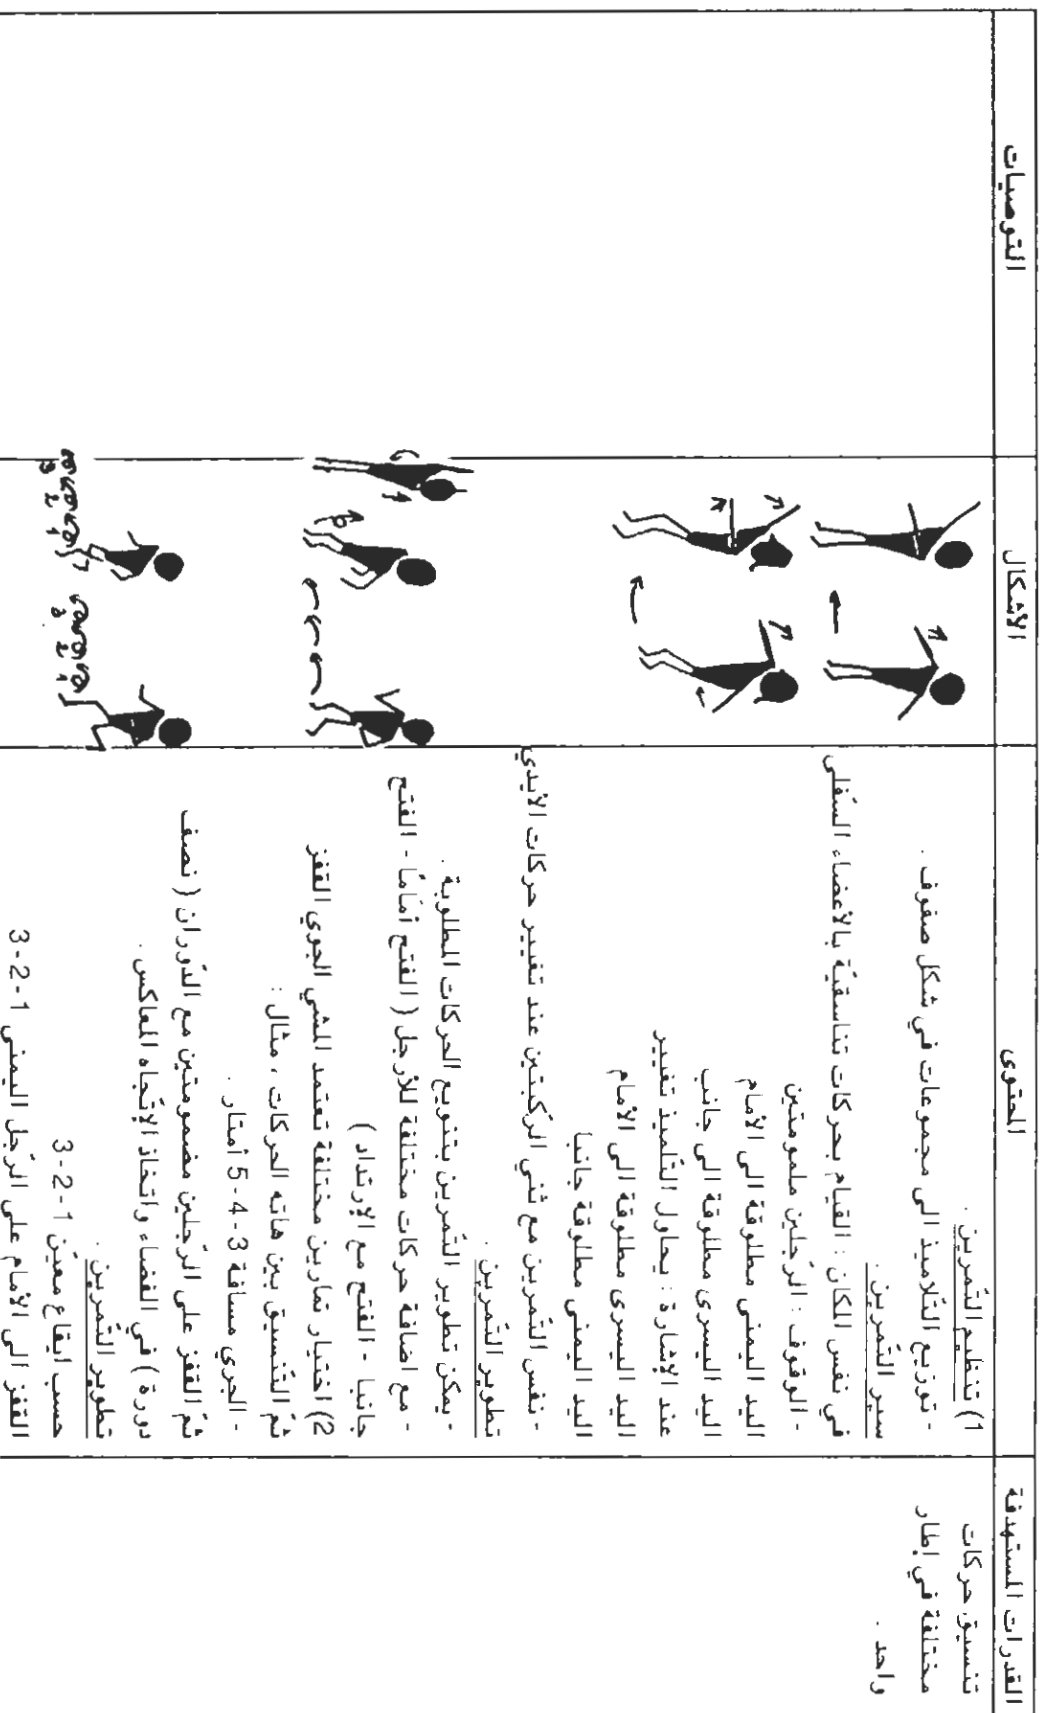 القدرات المستهدفة
المحتوى
الأشكال
التوصيات
تنسيق حركات
مختلفة في إطار
واحد .
1) تنظيم التّمرين .
- توزيع التّلاميذ الى مجموعات في شكل صفوف .
سير التّمرين .
في نفس المكان : القيام بحركات تناسقيّة بالأعضاء السّفلى
- الوقوف : الرّجلين ملمومتين
اليد اليمنى مطلوقة الى الأمام
اليد اليسرى مطلوقة الى جانب
عند الإشارة : يحاول التّلميذ تغيير
اليد اليسرى مطلوقة الى الأمام
اليد اليمنى مطلوقة جانبا
- نفس التّمرين مع ثني الرّكبتين عند تغيير حركات الأيدي
تطوير التّمرين .
- يمكن تطوير التّمرين بتنويع الحركات المطلوبة .
- مع اضافة حركات مختلفة للأرجل ( الفتح أمامًا - الفتح
جانبا - الفتح مع الإرتداد )
2) اختيار تمارين مختلفة تعتمد المشي الجوي القفز
ثمّ التّنسيق بين هاته الحركات ، مثال :
- الجري مسافة 3-4-5 أمتار .
ثمّ القفز على الرّجلين مضمومتين مع الدّوران ( نصف
دورة ) في الفضاء واتخاذ الإتّجاه المعاكس .
تطوير التّمرين .
حسب ايقاع معيّن 1-2-3
القفز الى الأمام على الرّجل اليمنى 1-2-3
1 2 3
1 2 3